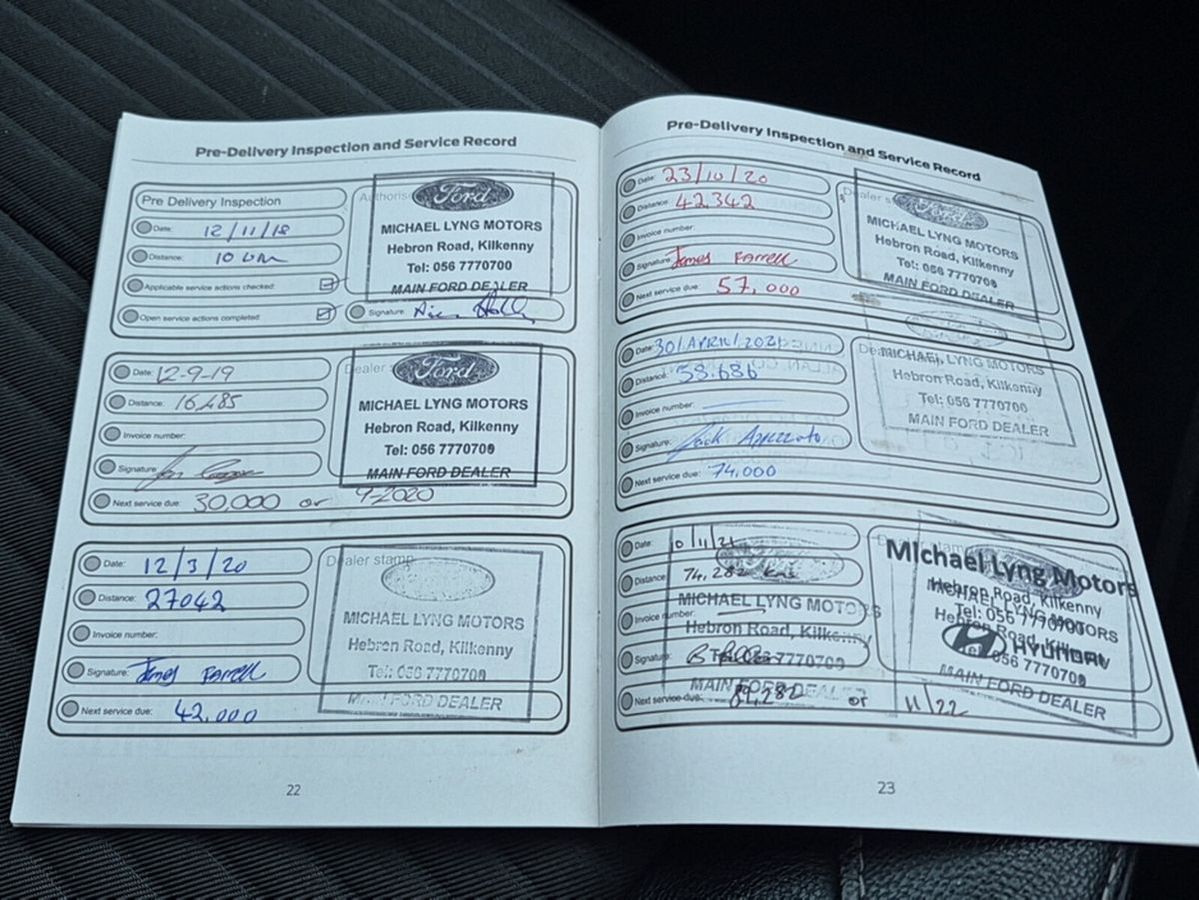 Pre-Delivery Inspection and Service Record
Pre Delivery Inspection
Date: 12/11/18
Distance: 10 km
Applicable service actions checked:
Open service actions completed:
Ford
MICHAEL LYNG MOTORS
Hebron Road, Kilkenny
Tel: 056 7770700
MAIN FORD DEALER
Signature:
Date: 12-9-19
Distance: 16,485
Invoice number:
Signature:
Next service due: 30,000 or 9-2020
Dealer
Ford
MICHAEL LYNG MOTORS
Hebron Road, Kilkenny
Tel: 056 7770700
MAIN FORD DEALER
Date: 12/3/20
Distance: 27042
Invoice number:
Signature: James Farrell
Next service due: 42,000
Dealer stamp
MICHAEL LYNG MOTORS
Hebron Road, Kilkenny
Tel: 056 7770700
MAIN FORD DEALER
22
Pre-Delivery Inspection and Service Record
Date: 23/10/20
Distance: 42,342
Invoice number:
Signature: James Farrell
Next service due: 57,000
Dealer s
Ford
MICHAEL LYNG MOTORS
Hebron Road, Kilkenny
Tel: 056 7770700
MAIN FORD DEALER
Date: 30/APRIL/2021
Distance: 58,686
Invoice number:
Signature: Jack
Next service due: 74,000
MICHAEL LYNG MOTORS
Hebron Road, Kilkenny
Tel: 056 7770700
MAIN FORD DEALER
Date: 10/11/21
Distance: 74,282 kms
Invoice number:
Signature:
Next service due: 89,282 or 11/22
MICHAEL LYNG MOTORS
Hebron Road, Kilkenny
Tel: 056 7770700
MAIN FORD DEALER
Dealer stamp
Michael Lyng Motors
Hebron Road, Kilkenny
Tel: 056 7770700
HYUNDAI
MICHAEL LYNG MOTORS
Hebron Road, Kilkenny
Tel: 056 7770700
MAIN FORD DEALER
23